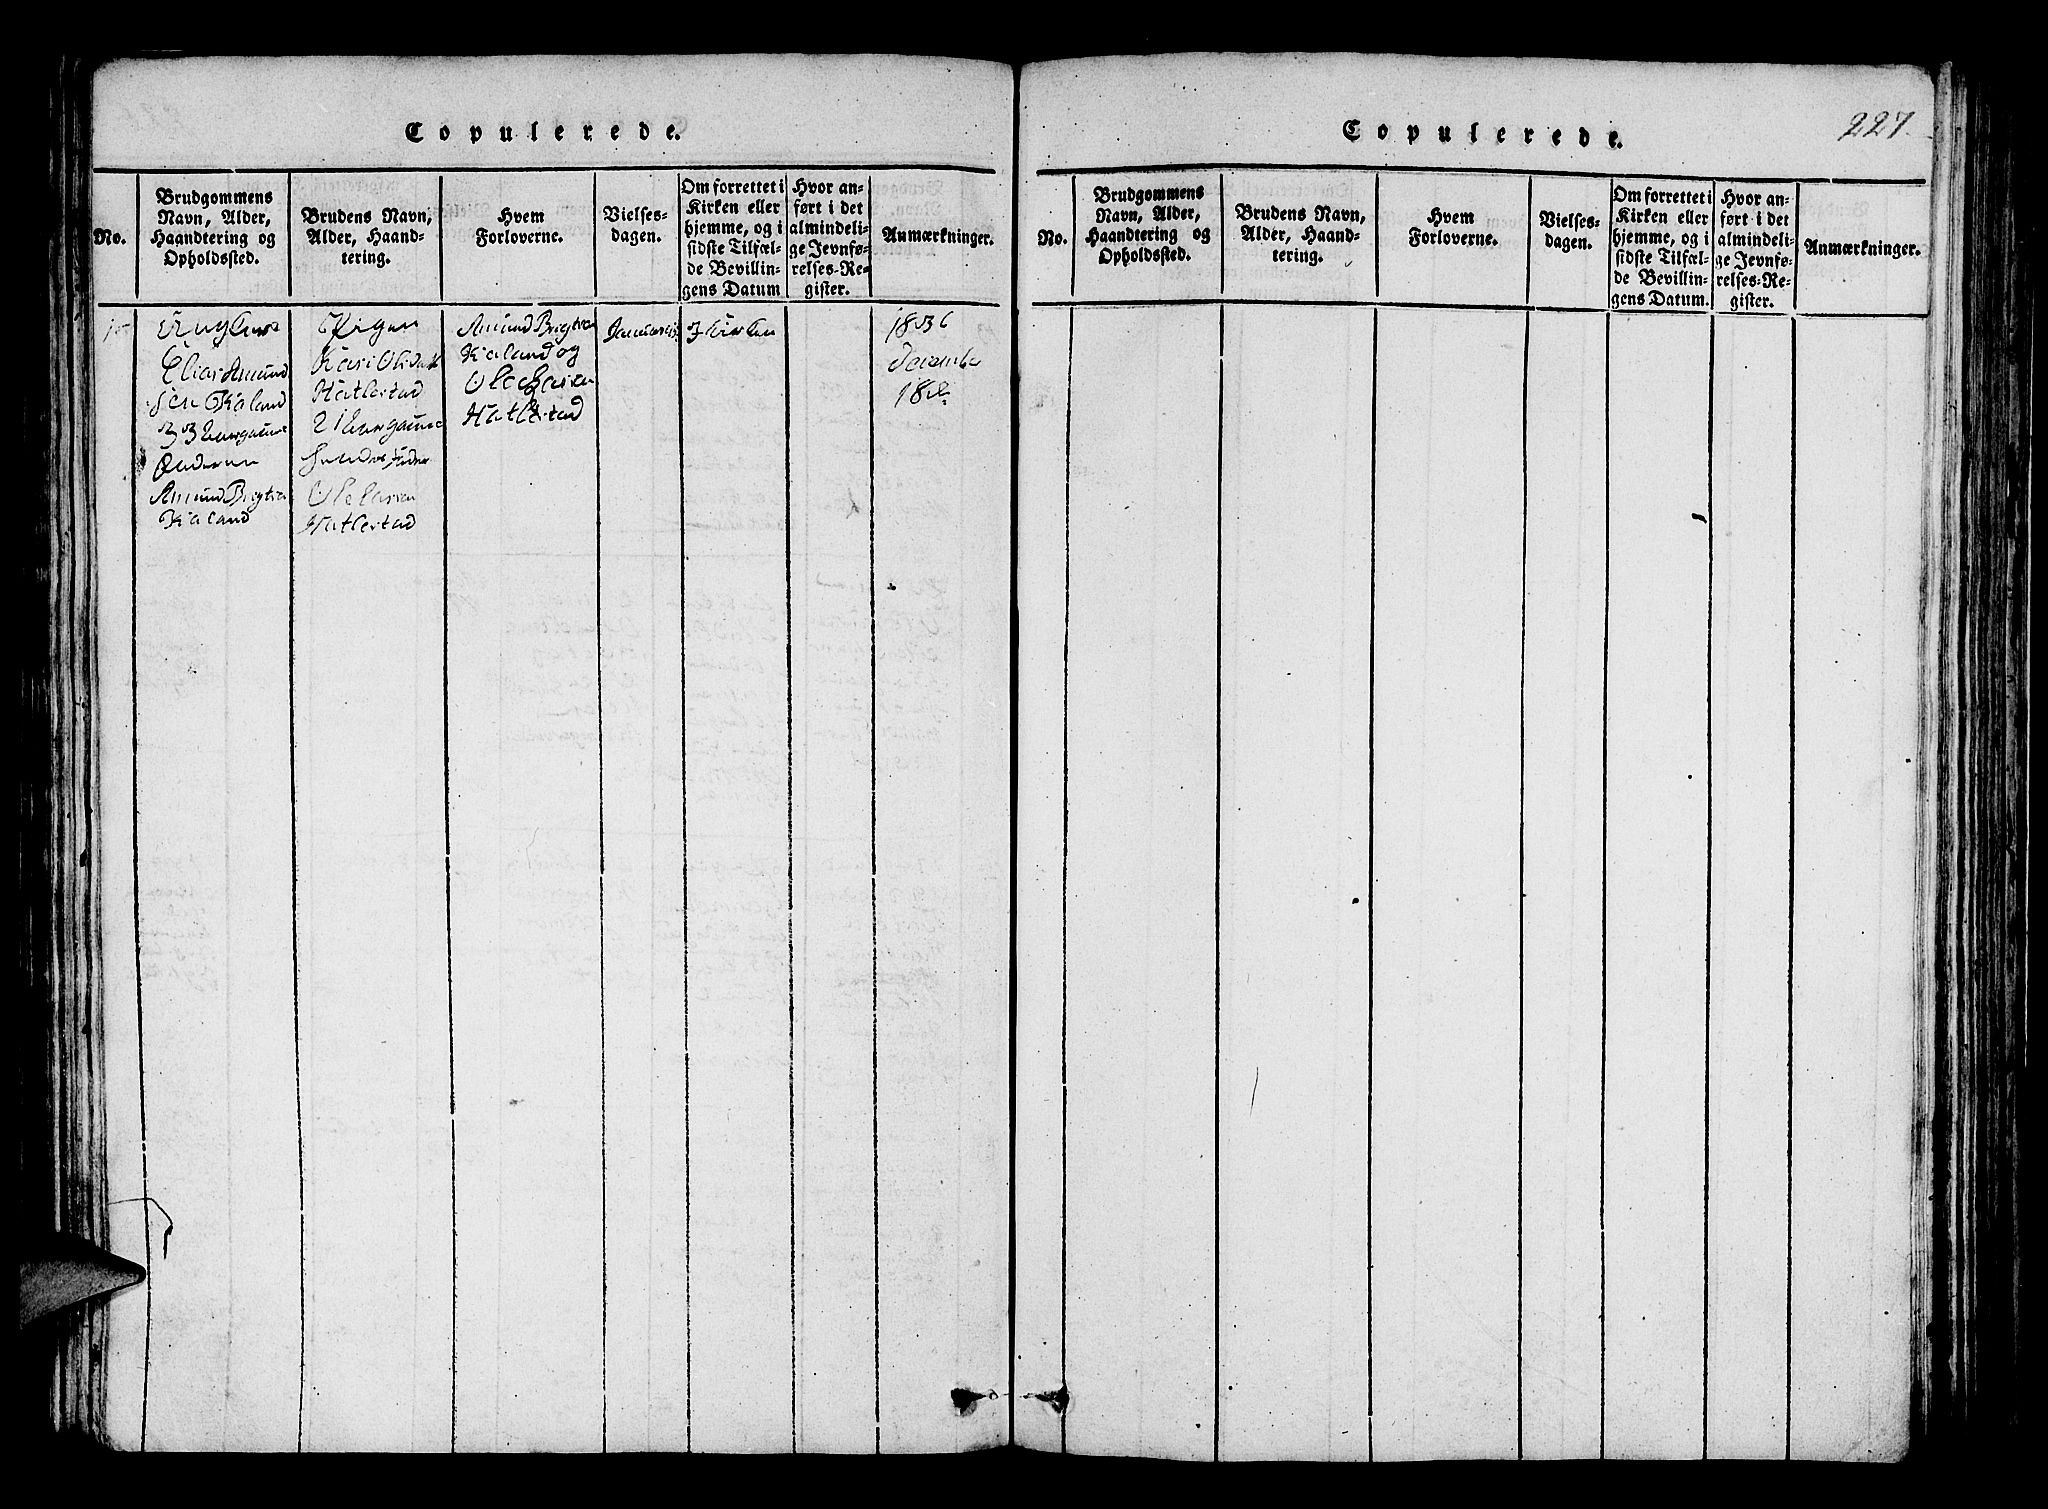 Copulerede.
No.
Brudgommens
Navn, Alder,
Haandtering og
Opholdssted.
Brudens Navn,
Alder, Haand-
tering.
Hvem
Forloverne.
Vielses-
dagen.
Om forrettet i
Kirken eller
hjemme, og i
sidste Tilfæl-
de Bevillin-
gens Datum
Hvor an-
ført i det
almindeli-
ge Jevnfø-
relses-Re-
gister.
Anmærkninger.
Ungkar
Elias Amund
sen Kaland
33 aar gaml
Amund Brigtsen
Kaland
Pigen
Kari Olsdatt
Hatlestad
21 aar gaml
Ole Larsen
Hatlestad
Amund Brigtsen
Kaland og
Ole Larsen
Hatlestad
Januar
I Kirken
1836
December
18de
Copulerede.
227.
No.
Brudgommens
Navn, Alder,
Haandtering og
Opholdssted.
Brudens Navn,
Alder, Haand-
tering.
Hvem
Forloverne.
Vielses-
dagen.
Om forrettet i
Kirken eller
hjemme, og i
sidste Tilfæl-
de Bevillin-
gens Datum.
Hvor an-
ført i det
almindeli-
ge Jevnfø-
relses-Re-
gister.
Anmærkninger.